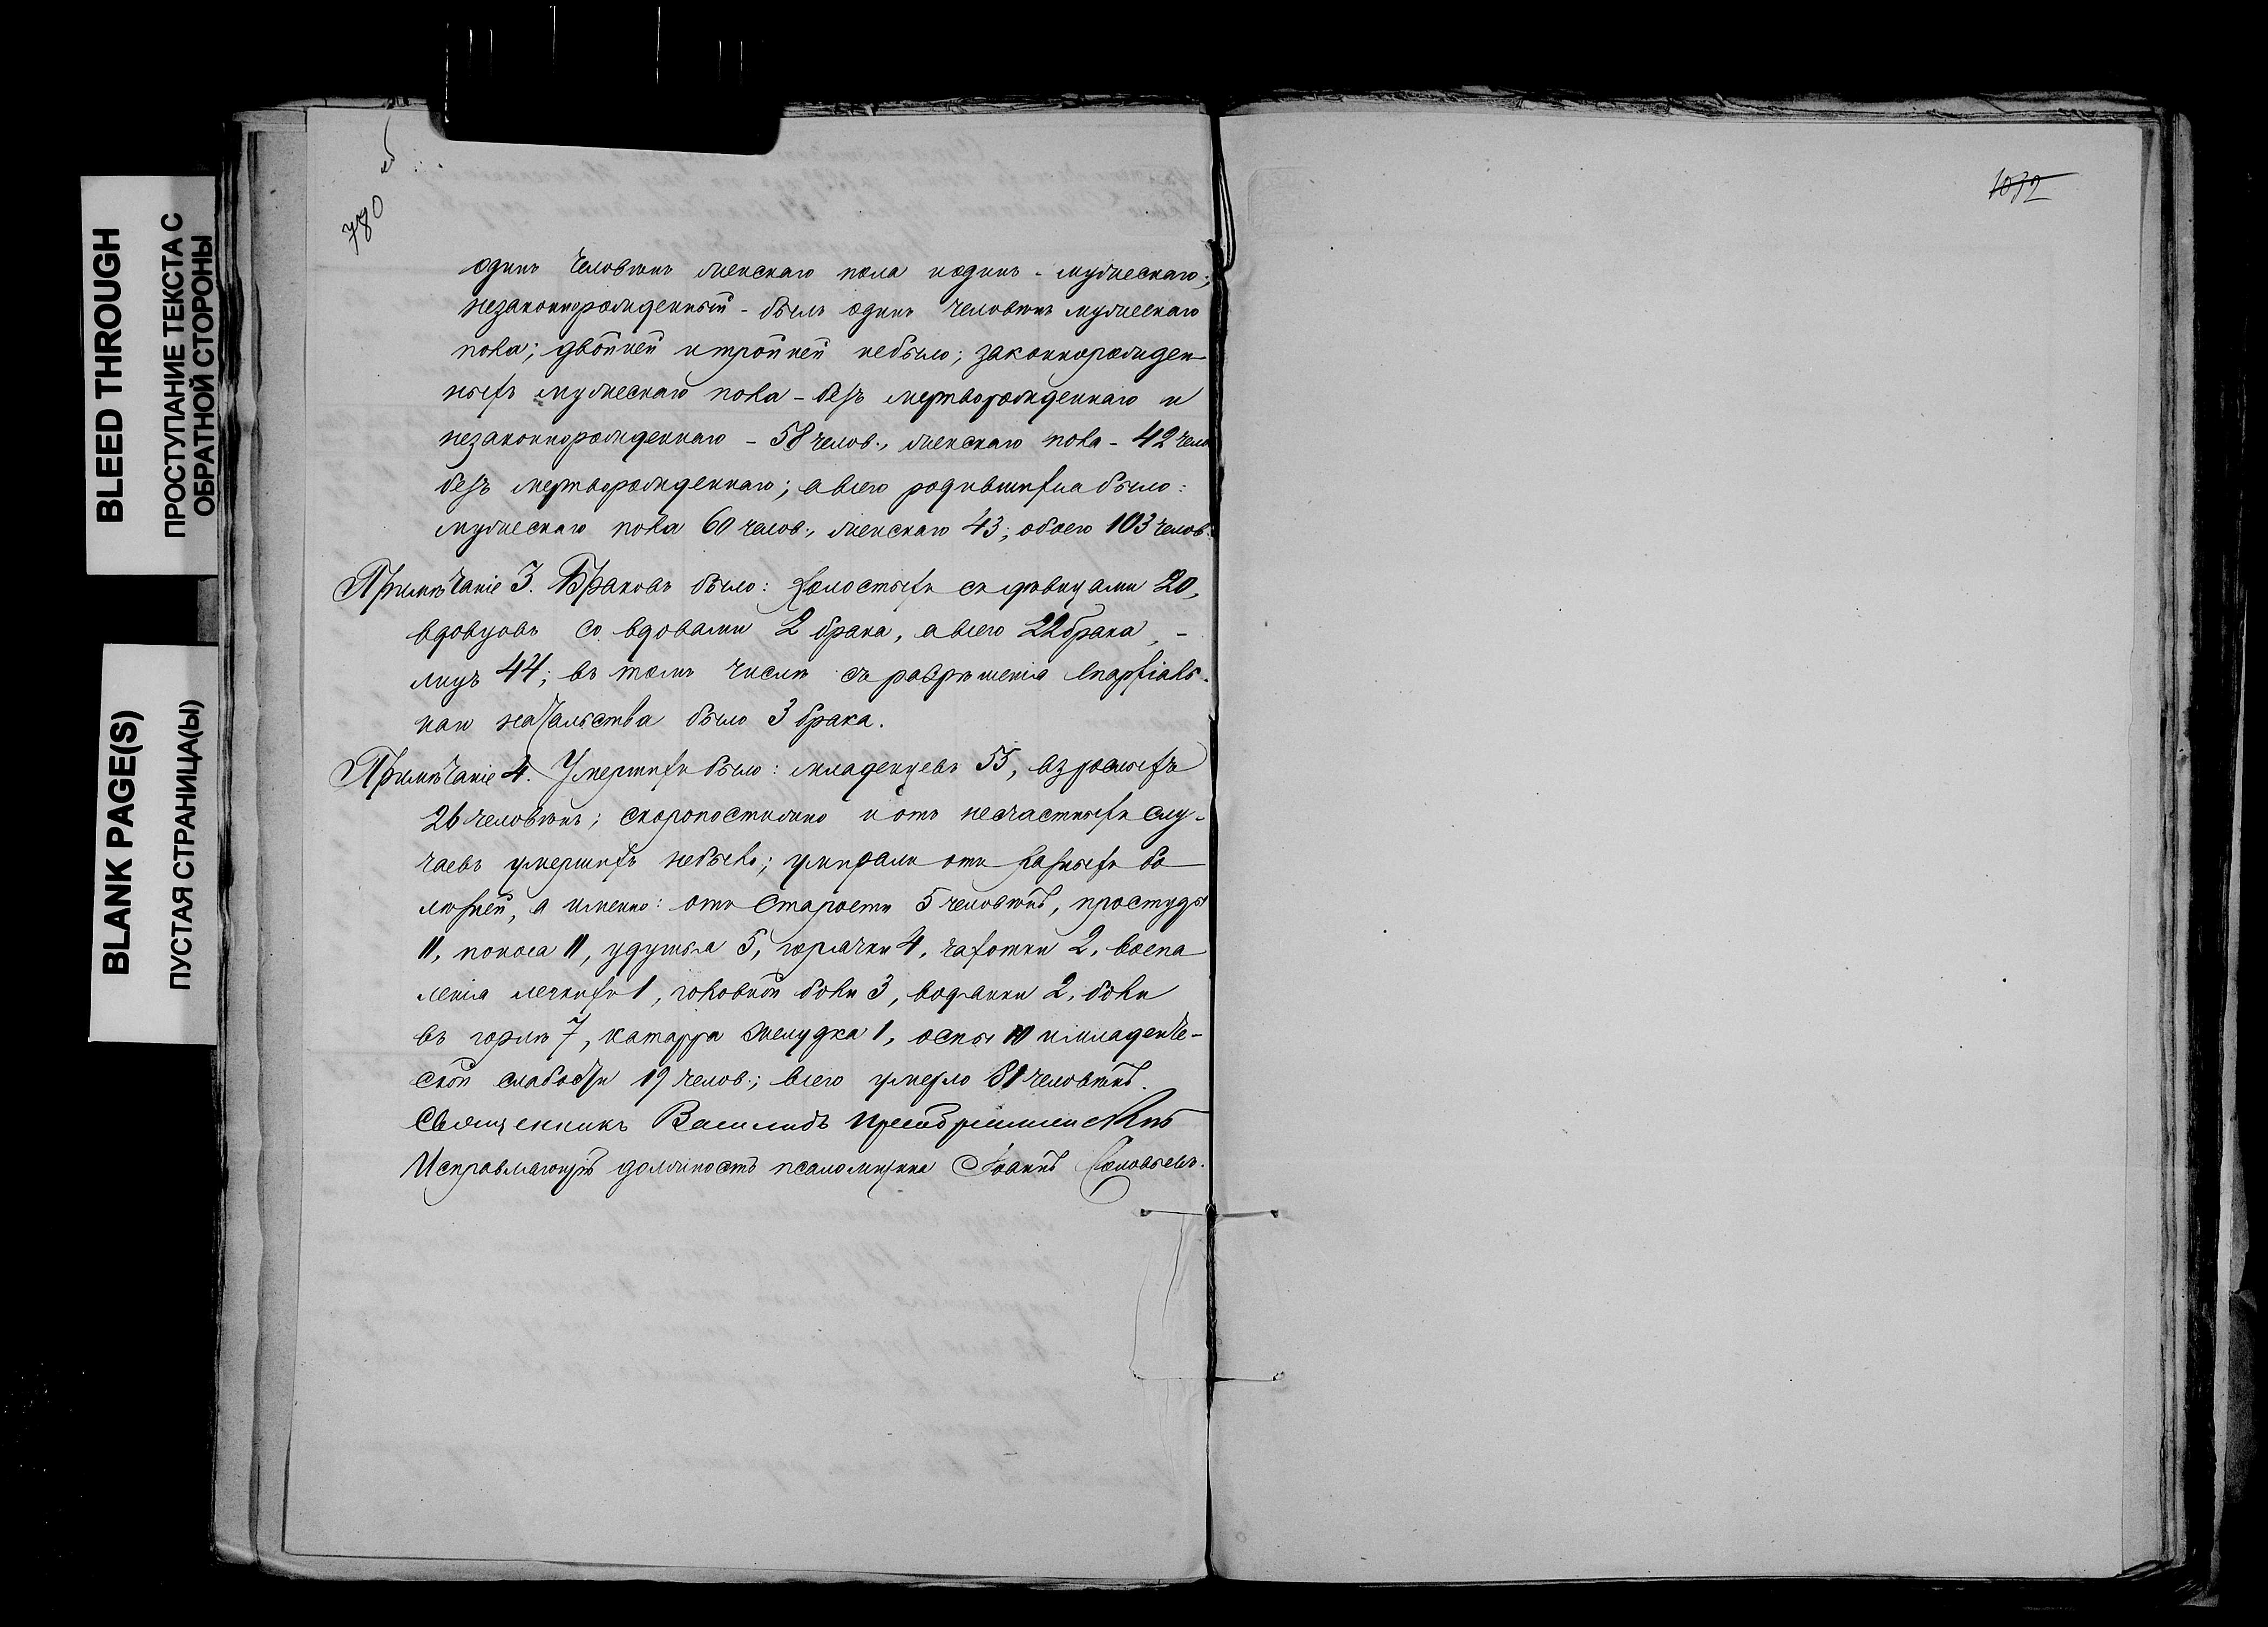 780 об
1032
одинъ человѣкъ женскаго пола и одинъ - мужескаго;
незаконнорожденный - былъ одинъ человѣкъ мужескаго
пола; двойней и тройней небыло; законнорожден-
ныхъ мужескаго пола - безъ мертворожденнаго и
незаконнорожденнаго - 58 челов., женскаго пола - 42 чел
безъ мертворожденнаго; а всего родившихся было:
мужескаго пола 60 челов., женскаго 43; обоего 103 челов.
Примѣчаніе 3. Браковъ было: холостыхъ съ дѣвицами 20,
вдовцовъ со вдовами 2 брака, а всего 22 брака, -
лицъ 44; въ томъ числѣ съ разрѣшенія Епархіаль-
наго начальства было 3 брака.
Примѣчаніе 4. Умершихъ было: младенцевъ 55, взрослыхъ
26 человѣкъ; скоропостижно и отъ несчастныхъ слу-
чаевъ умершихъ небыло; умирали отъ разныхъ бо-
лѣзней, а именно: отъ старости 5 человѣкъ, простуды
11, поноса 11, удушья 5, горячки 4, чахотки 2, воспа
ленія легкихъ 1, головной боли 3, водянки 2, боли
въ горлѣ 7, катарра желудка 1, оспы 10 и младенче-
ской слабости 19 челов.; всего умерло 81 человѣкъ.
Священникъ Василій Преображенскій
Исправляющій должность псаломщика Іоаннъ Соловьевъ.
BLEED THROUGH
ПРОСТУПАНИЕ ТЕКСТА С
ОБРАТНОЙ СТОРОНЫ
BLANK PAGE(S)
ПУСТАЯ СТРАНИЦА(Ы)